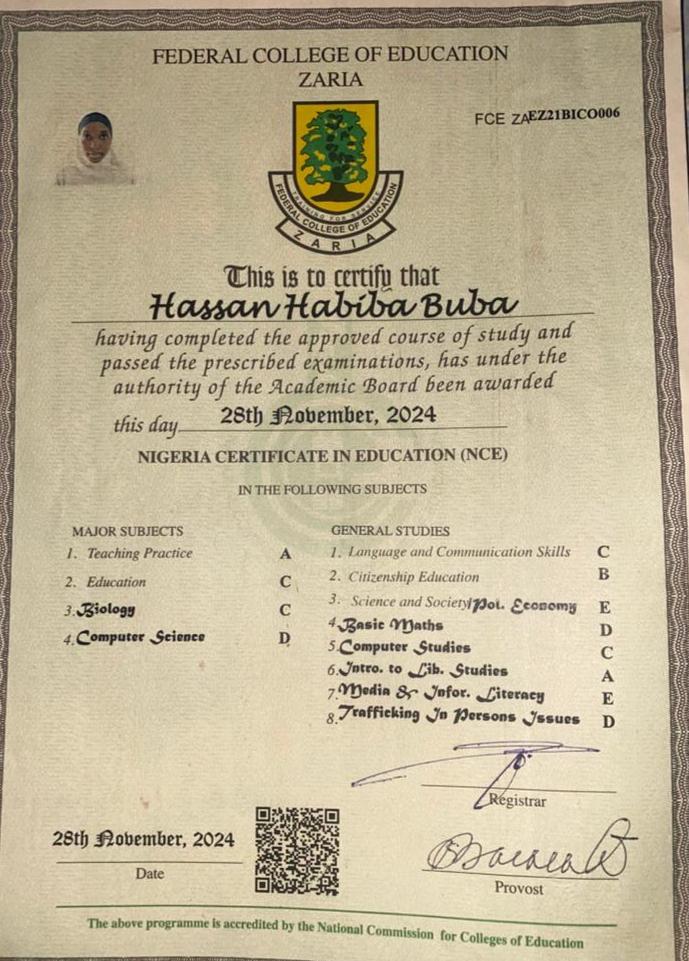 FEDERAL COLLEGE OF EDUCATION
ZARIA
FCE ZAEZ21BICO006
TRAINING FOR SERVICE
FEDERAL COLLEGE OF EDUCATION
ZARIA
This is to certify that
Hassan Habiba Buba
having completed the approved course of study and
passed the prescribed examinations, has under the
authority of the Academic Board been awarded
this day 28th November, 2024
NIGERIA CERTIFICATE IN EDUCATION (NCE)
IN THE FOLLOWING SUBJECTS
MAJOR SUBJECTS
1. Teaching Practice A
2. Education C
3. Biology C
4. Computer Science D
GENERAL STUDIES
1. Language and Communication Skills C
2. Citizenship Education B
3. Science and Society/Pol. Economy E
4. Basic Maths D
5. Computer Studies C
6. Intro. to Lib. Studies A
7. Media & Infor. Literacy E
8. Trafficking In Persons Issues D
Registrar
28th November, 2024
Date
Provost
The above programme is accredited by the National Commission for Colleges of Education